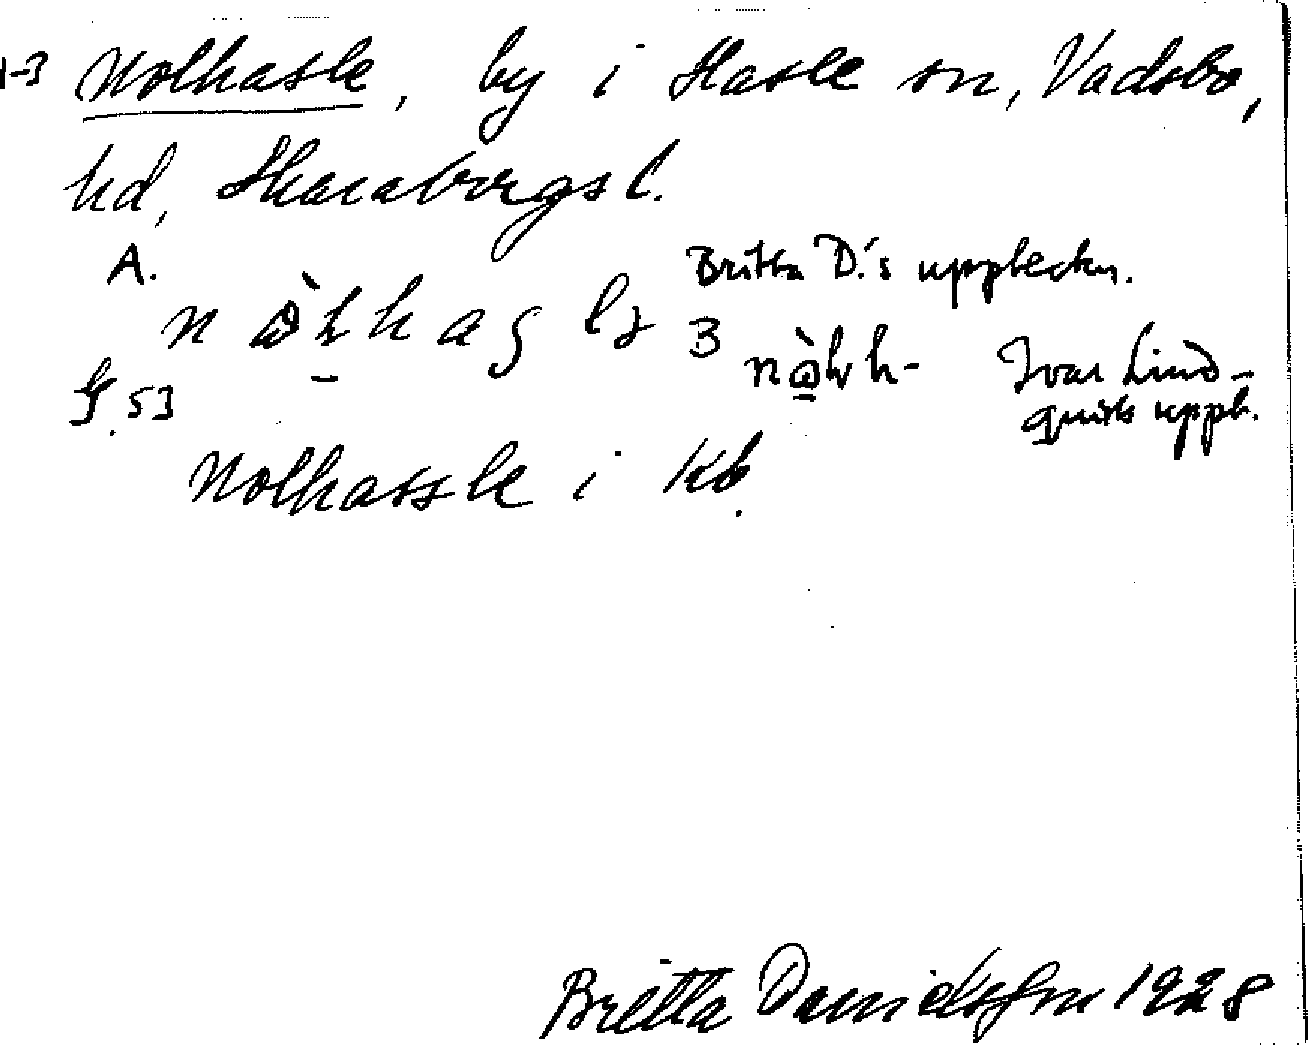 1-3 Nolhasle, by i Hasle sn, Vadsbo,
hd, Skaraborgs l.
A.
Britta D:s uppteckn.
B
Ivar Lind-
quists uppt.
§. 53
Nolhassle i kb.
Britta Danielsson 1928